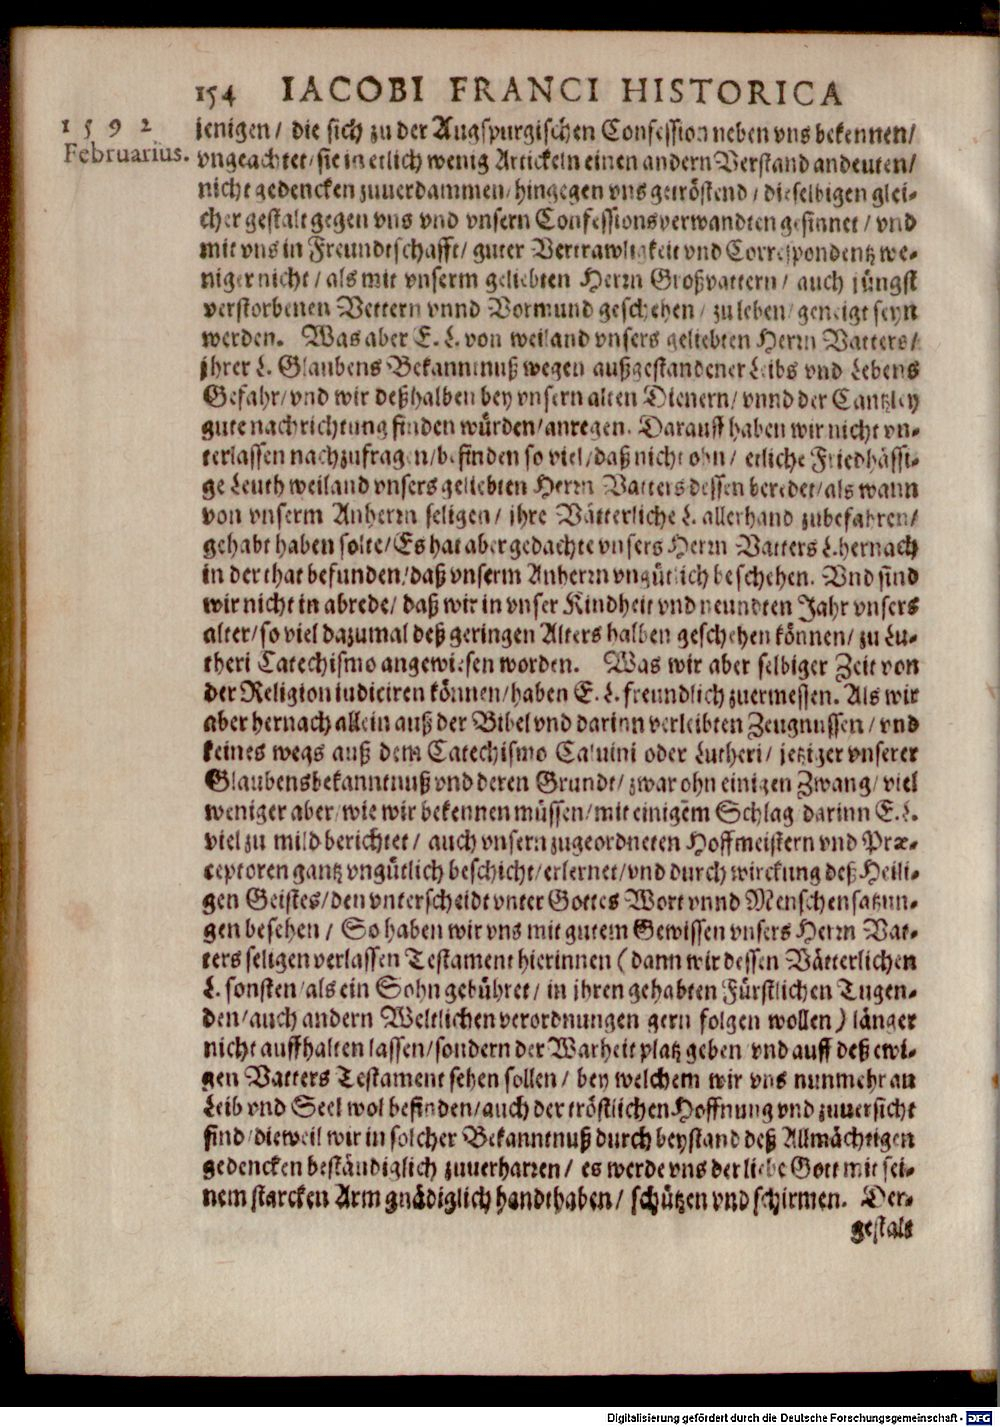 154 IACOBI FRANCI HISTORICA
1592
Februarius.
jenigen/ die sich zu der Augspurgischen Confession neben vns bekennen/
vngeachtet/ sie in etlich wenig Artickeln einen andern Verstand andeuten/
nicht gedencken zuuerdammen/ hingegen vns getröstend/ dieselbigen glei-
cher gestalt gegen vns vnd vnsern Confessionsverwandten gesinnet/ vnd
mit vns in Freundtschafft/ guter Vertrawligkeit vnd Correspondentz we-
niger nicht/ als mit vnserm geliebten Herrn Großvattern/ auch jüngst
verstorbenen Vettern vnnd Vormund geschehen/ zu leben/ geneigt seyn
werden. Was aber E. L. von weiland vnsers geliebten Herrn Vatters/
jhrer L. Glaubens Bekanntnuß wegen außgestandener Leibs vnd Lebens
Gefahr/ vnd wir deßhalben bey vnsern alten Dienern/ vnnd der Cantzley
gute nachrichtung finden würden/ anregen. Darauff haben wir nicht vn-
terlassen nachzufragen/ befinden so viel/ daß nicht ohn/ etliche Friedhässi-
ge Leuth weiland vnsers geliebten Herrn Vatters dessen beredet/ als wann
von vnserm Anherrn seligen/ jhre Vätterliche L. allerhand zubefahren/
gehabt haben solte/ Es hat aber gedachte vnsers Herrn Vatters L. hernach
in der that befunden/ daß vnserm Anherrn vngütlich beschehen. Vnd sind
wir nicht in abrede/ daß wir in vnser Kindheit vnd neundten Jahr vnsers
alter/ so viel dazumal deß geringen Alters halben geschehen können/ zu Lu-
theri Catechismo angewiesen worden. Was wir aber selbiger Zeit von
der Religion iudiciren können/ haben E. L. freundlich zuermessen. Als wir
aber hernach allein auß der Bibel vnd darinn verleibten Zeugnussen/ vnd
keines wegs auß dem Catechismo Caluini oder Lutheri/ jetziger vnserer
Glaubensbekanntnuß vnd deren Grundt/ zwar ohn einigen Zwang/ viel
weniger aber/ wie wir bekennen müssen/ mit einigem Schlag darinn E. L.
viel zu mild berichtet/ auch vnsern zugeordneten Hoffmeistern vnd Præ-
ceptoren gantz vngütlich beschicht/ erlernet/ vnd durch wirckung deß Heili-
gen Geistes/ den vnterscheidt vnter Gottes Wort vnnd Menschensatzun-
gen besehen/ So haben wir vns mit gutem Gewissen vnsers Herrn Vat-
ters seligen verlassen Testament hierinnen (dann wir dessen Vätterlichen
L. sonsten/ als ein Sohn gebühret/ in jhren gehabten Fürstlichen Tugen-
den/ auch andern Weltlichen verordnungen gern folgen wollen) länger
nicht auffhalten lassen/ sondern der Warheit platz geben vnd auff deß ewi-
gen Vatters Testament sehen sollen/ bey welchem wir vns nunmehr an
Leib vnd Seel wol befinden/ auch der tröstlichen Hoffnung vnd zuuersicht
sind/ dieweil wir in solcher Bekanntnuß durch beystand deß Allmächtigen
gedencken beständiglich zuuerharren/ es werde vns der liebe Gott mit sei-
nem starcken Arm gnädiglich handthaben/ schützen vnd schirmen. Der-
gestalt
Digitalisierung gefördert durch die Deutsche Forschungsgemeinschaft - DFG